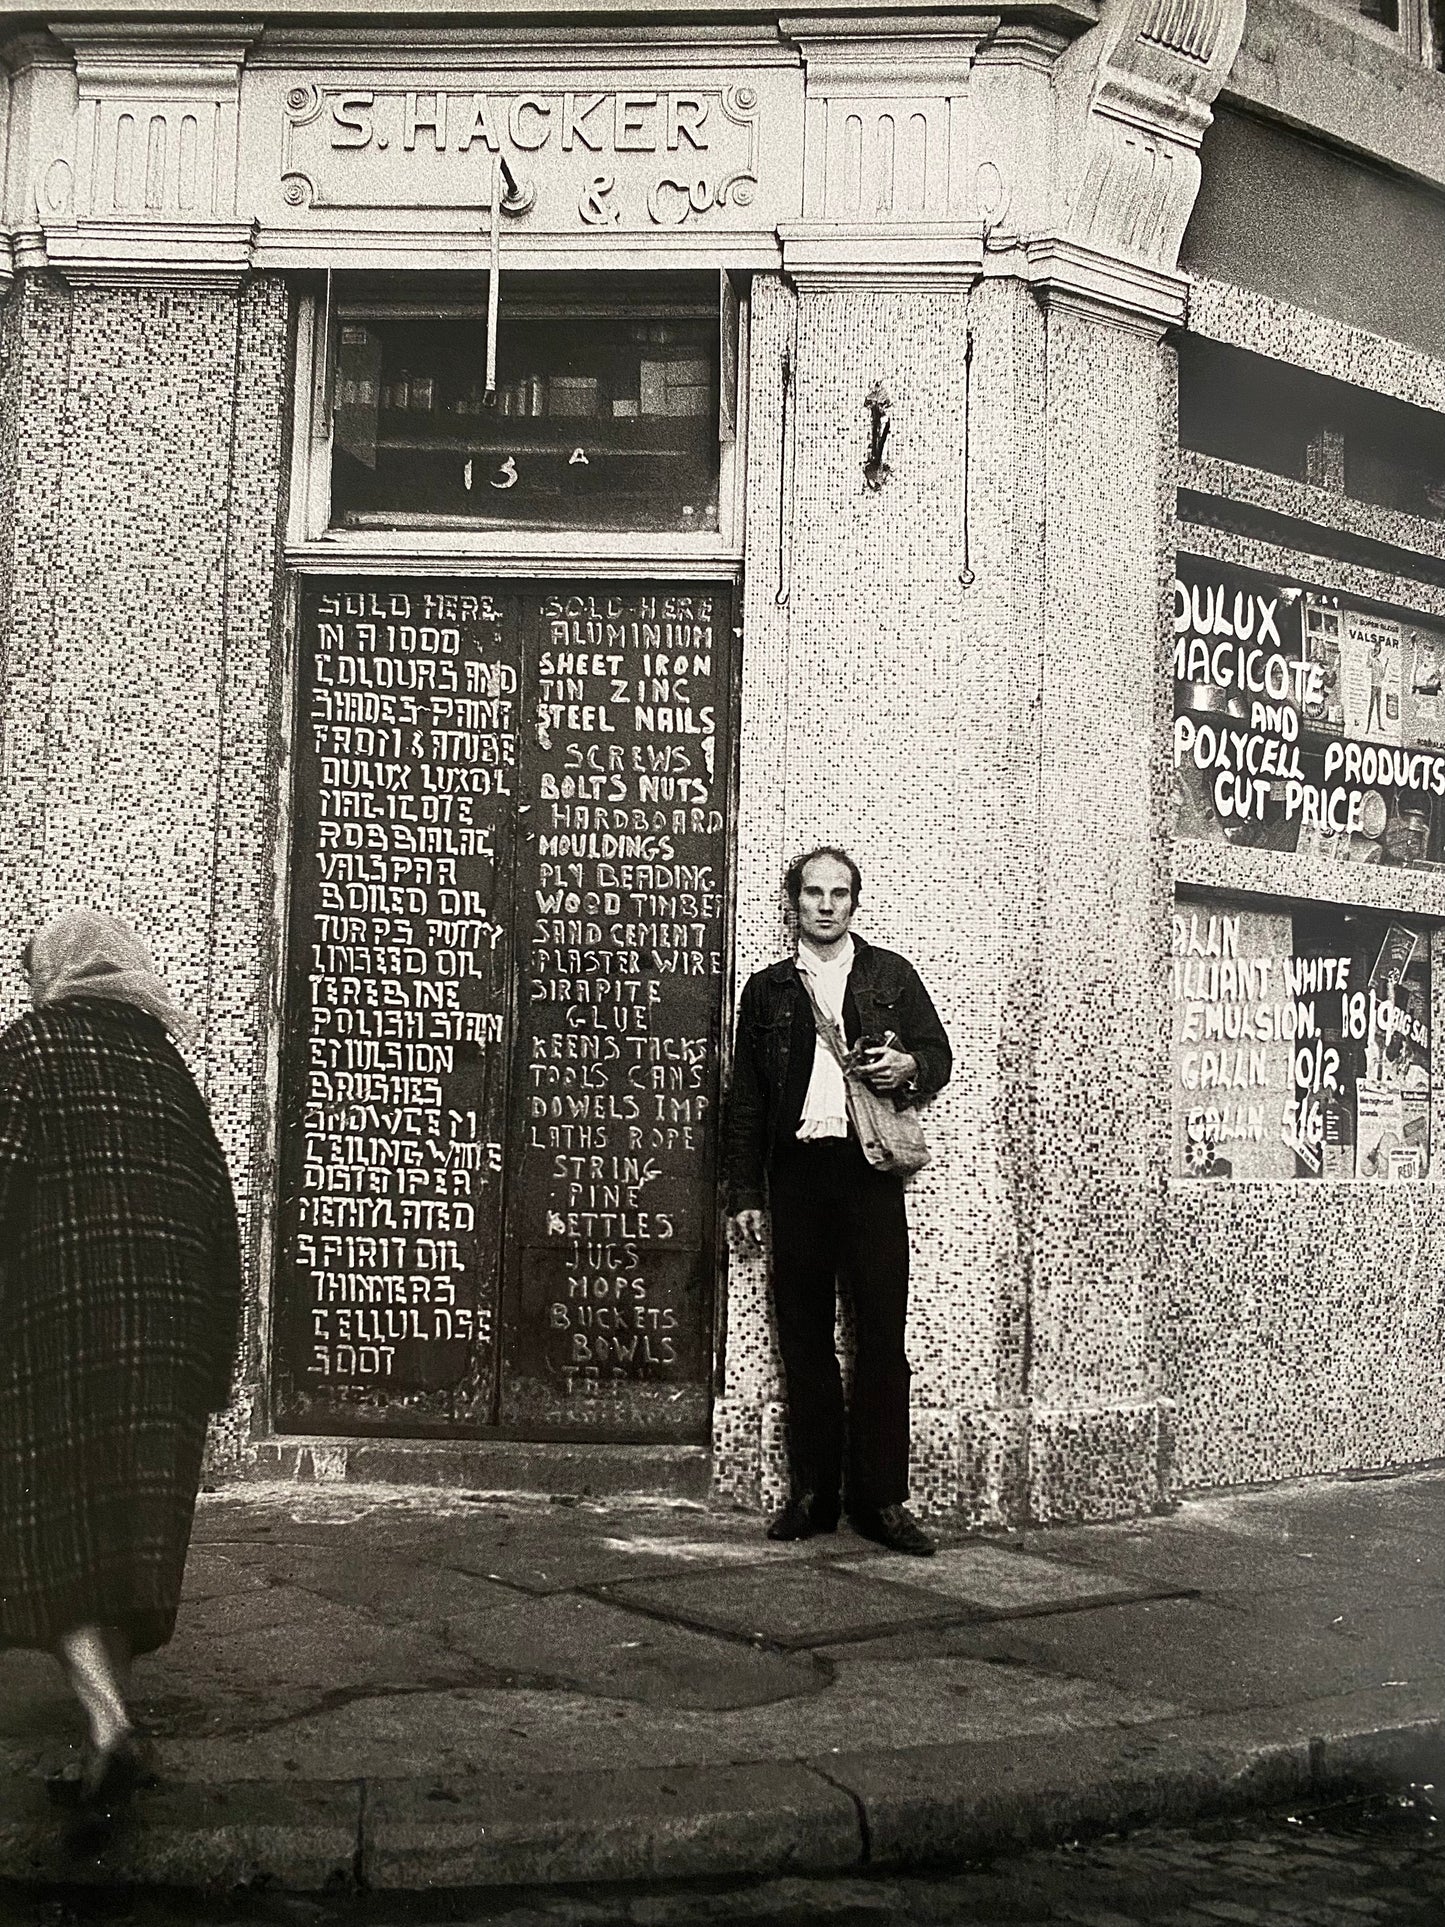 S. HACKER
& Co.
13 A
SOLD HERE
IN A 1000
COLOURS AND
SHADES PAINT
FROM & A TUBE
DULUX LUXOL
MAGICOTE
ROBBIALAC
VALSPAR
BOILED OIL
TURPS PUTTY
LINSEED OIL
TEREBINE
POLISH STAIN
EMULSION
BRUSHES
SNOWCEM
CEILING WHITE
DISTEMPER
METHYLATED
SPIRIT OIL
THINNERS
CELLULOSE
SOOT
SOLD HERE
ALUMINIUM
SHEET IRON
TIN ZINC
STEEL NAILS
SCREWS
BOLTS NUTS
HARDBOARD
MOULDINGS
PLY BEADING
WOOD TIMBER
SAND CEMENT
PLASTER WIRE
SIRAPITE
GLUE
KEENS TACKS
TOOLS CANS
DOWELS IMP
LATHS ROPE
STRING
PINE
KETTLES
JUGS
MOPS
BUCKETS
BOWLS
DULUX
MAGICOTE
AND
POLYCELL PRODUCTS
CUT PRICE
VALSPAR
GALLN
BRILLIANT WHITE
EMULSION. 18/9
GALLN 10/2.
GALLN 5/6